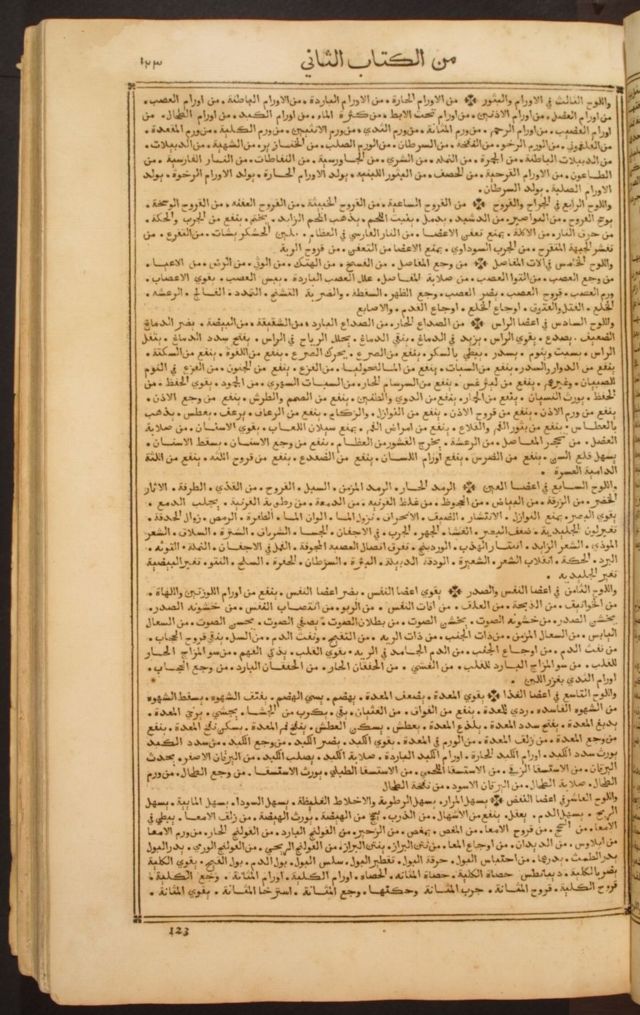 ١٢٣ من الكتاب الثاني
واللوح الثالث في الاورام والبثور ۞ من الاورام الحارة ٠ من الاورام الباردة ٠ من الاورام الباطنة ٠ من اورام العصب ٠
من اورام العضل ٠ من اورام الاذنين ٠ من اورام تحت الابط ٠ من كثرة الماء ٠ من اورام الكبد ٠ من اورام الطحال ٠ من
اورام القضيب ٠ من اورام الرحم ٠ من ورم المثانة ٠ من ورم الثدي ٠ من ورم الانثيين ٠ من ورم الكلية ٠ من ورم المقعدة ٠
من الفلغموني ٠ من الورم الرخو ٠ من النفخة ٠ من السرطان ٠ من الورم الصلب ٠ من الخنازير ٠ من الشهدية ٠ من الدبيلات ٠
من الدبيلات الباطنة ٠ من الجمرة ٠ من النملة ٠ من الشري ٠ من الجاورسية ٠ من النفاطات ٠ من النار الفارسية ٠ من
الطاعون ٠ من الاورام القرحية ٠ من الحصف ٠ من البثور اللبنيه ٠ يولد الاورام الحارة ٠ يولد الاورام الرخوة ٠ يولد
الاورام الصلبة ٠ يولد السرطان ٠
واللوح الرابع في الجراح والقروح ۞ من القروح الساعية ٠ من القروح الخبيثة ٠ من القروح العفنه ٠ من القروح الوسخة ٠
يوسخ القروح ٠ من النواصير ٠ من الدشبد ٠ يدمل ٠ ينبت اللحم ٠ يذهب اللحم الزايد ٠ يختم ٠ ينفع من الجرب والحكة ٠
من حرق النار ٠ من الاكلة ٠ يمنع تعفن الاعضا ٠ من النار الفارسي في العظام ٠ يلين الخشكريشات ٠ من التقرع ٠ من
تقشر الجبهة المتقرح ٠ من الجرب السوداوي ٠ يمنع الاعضا من التعفن ٠ من قروح الرية
واللوح الخامس في الات المفاصل ۞ من وجع المفاصل ٠ من الفسخ ٠ من الهتك ٠ من الوثي ٠ من الرض ٠ من الاعيا ٠
من وجع العصب ٠ من التوا العصب ٠ من صلابة المفاصل ٠ علل العصب الباردة ٠ يبس العصب ٠ يقوي الاعصاب ٠
ورم العصب ٠ قروح العصب ٠ يضر العصب ٠ وجع الظهر ٠ السقطة ٠ والضربة التشنج ٠ التمدد ٠ الفالج ٠ الرعشه ٠
الخلع ٠ الفتل والعقرون ٠ اوجاع الخلع ٠ اوجاع القدم ٠ والاصابع
واللوح السادس في اعضا الراس ۞ من الصداع الحار ٠ من الصداع البارد ٠ من الشقيقة ٠ من البيضة ٠ يضر الدماغ
الضعيف ٠ يصدع ٠ يقوي الراس ٠ يزيد في الدماغ ٠ ينقي الدماغ ٠ يحلل الرياح في الراس ٠ يفتح سدد الدماغ ٠ يثقل
الراس ٠ يسبت وينوم ٠ يسدر ٠ يبطي بالسكر ٠ ينفع من الصرع ٠ يحرك الصرع ٠ ينفع من اللقوة ٠ ينفع من السكتة ٠
ينفع من الدوار والسدر ٠ ينفع من السبات ٠ ينفع من المالخوليا ٠ من الفزع ٠ ينفع من الجنون ٠ من الفزع في النوم
للصبيان ٠ وغيرهم ٠ ينفع من ليثرغس ٠ ينفع من السرسام الحار ٠ من السبات السهري ٠ من الجمود ٠ يقوي الحفظ ٠ من
لحفظ ٠ يورث النسيان ٠ ينفع من الخمار ٠ ينفع من الدوي والطنين ٠ ينفع من الصمم والطرش ٠ ينفع من وجع الاذن ٠
ينفع من ورم الاذن ٠ ينفع من قروح الاذن ٠ ينفع من النوازل ٠ والزكام ٠ ينفع من الرعاف ٠ يرعف ٠ يعطس ٠ يذهب
بالعطاس ٠ ينفع من بثور الفم والقلاع ٠ ينفع من امراض الفم ٠ يمنع سيلان اللعاب ٠ يقوي الاسنان ٠ من صلابة
العضل ٠ من تحجر المفاصل ٠ من الرعشة ٠ يخرج القشور من العظام ٠ ينفع من وجع الاسنان ٠ يسقط الاسنان ٠
يسهل قلع السن ٠ ينفع من الضرس ٠ ينفع اورام اللسان ٠ ينفع من الضفدع ٠ ينفع من قروح اللثه ٠ ينفع من اللثة
الدامية العسرة ٠
واللوح السابع في اعضا العين ۞ الرمد الحار ٠ الرمد المزمن ٠ السبل ٠ القروح ٠ من القذي ٠ الطرفة ٠ الاثار
الخضر ٠ من الزرقة ٠ من البياض ٠ من الجحوظ ٠ من غلظ القرنيه ٠ من الدمعة ٠ من رطوبة القرنية ٠ يجلب الدمع ٠
يقوي البصر ٠ يمنع النوازل ٠ الانتشار ٠ الضيف ٠ الانحراف ٠ نزول الما ٠ الوان الما ٠ الظفرة ٠ الرمص ٠ زوال الحدقة ٠
تغير لون الجليدية ٠ ضعف البصر ٠ العشا ٠ الجهر ٠ الجرب ٠ في الاجفان ٠ الجسا ٠ الشرناق ٠ الشترة ٠ السلاق ٠ الشعر
الموذي ٠ الشعر الزايد ٠ انتثار الهدب ٠ الوردينج ٠ تفرق اتصال العصبه المجوفة ٠ القمل في الاجفان ٠ النملة ٠ التوثه ٠
البرد ٠ الحكة ٠ انقلاب الشعر ٠ الشعيرة ٠ الودقة ٠ الدبيلة ٠ البثرة ٠ السرطان ٠ الحفرة ٠ السلح ٠ النتو ٠ تغير البيضية
تغير الجليديه ٠
واللوح الثامن في اعضا النفس والصدر ۞ يقوي اعضا النفس ٠ يضر اعضا النفس ٠ ينفع من اورام اللوزتين واللهاة ٠
من الخوانيق ٠ من الذبحة ٠ من العلف ٠ من افات النفس ٠ من الربو ٠ من انتصاب النفس ٠ من خشونه الصدر ٠
يخشن الصدر ٠ من خشونه الصوت ٠ يخشن الصوت ٠ من بطلان الصوت ٠ يصفي الصوت ٠ يحسن الصوت ٠ من السعال
اليابس ٠ من السعال المزمن ٠ من ذات الجنب ٠ من ذات الريه ٠ من التقيح ٠ ونفث الدم ٠ من السل ٠ ينقي قروح الحجاب ٠
من نفث الدم ٠ من اوجاع الجنب ٠ من الدم الجامد في الريه ٠ يقوي القلب ٠ يذكي الفهم ٠ من سو المزاج الحار
للقلب ٠ من سو المزاج البارد للقلب ٠ من الغشي ٠ من الخفقان الحار ٠ من الخفقان البارد ٠ من وجع الحجاب ٠
اورام الثدي يغزر اللبن ٠
واللوح التاسع في اعضا الغذا ۞ يقوي المعدة ٠ يضعف المعدة ٠ يهضم ٠ يسي الهضم ٠ يفتق الشهوه ٠ يسقط الشهوه
من الشهوه الفاسده ٠ ردي للمعدة ٠ ينفع من الفواق ٠ من الغثيان ٠ يقي ٠ يكرب من الجشا ٠ يجشي ٠ يرخي المعدة ٠
يدبغ المعدة ٠ يفتح سدد المعدة ٠ يلذع المعدة ٠ يعطش ٠ يسكن العطش ٠ ينفخ فم المعدة ٠ يسكن نفخ المعدة ٠ ينفع
من وجع المعدة ٠ من زلق المعدة ٠ من الورم في المعدة ٠ يقوي الكبد ٠ يضر الكبد ٠ من وجع الكبد ٠ من سدد الكبد
يورث سدد الكبد ٠ اورام الكبد الحارة ٠ اورام الكبد الباردة ٠ صلابة الكبد ٠ يصلب الكبد ٠ من اليرقان الاصفر ٠ يحدث
اليرقان ٠ من الاستسقا الزقي ٠ من الاستسقا اللحمي ٠ من الاستسقا الطبلي ٠ يورث الاستسقا ٠ من وجع الطحال ٠ من ورم
الطحال ٠ صلابة الطحال ٠ من اليرقان الاسود ٠ من نفخة الطحال
واللوح العاشر في اعضا النفض ۞ يسهل المرار ٠ يسهل الرطوبة والاخلاط الغليظة ٠ يسهل السودا ٠ يسهل المايية ٠ يسهل
الريح ٠ يسهل الدم ٠ يعقل ٠ ينفع من الاسهال ٠ من الذرب ٠ من الهيضة ٠ يورث الهيضة ٠ من زلق الامعا ٠ يبطي في
الامعا ٠ من السحج ٠ من قروح الامعا ٠ من المغص ٠ يمغص ٠ من الزحير ٠ من القولنج البارد ٠ من القولنج الحار ٠ من ورم الامعا
من ايلاوس ٠ من الديدان ٠ من اوجاع المعا ٠ من نتن البراز ٠ ينتن البراز ٠ من القولنج الريحي ٠ من القولنج الورمي ٠ يدر البول
يدر الطمث ٠ يدرهما ٠ من احتباس البول ٠ حرقة البول ٠ تقطير البول ٠ سلس البول ٠ بول الدم ٠ بول القيح ٠ يقوي الكلية
يضر بالكلية ٠ ديابيطس ٠ حصاة الكلية ٠ حصاة المثانه ٠ الحصاه ٠ اورام الكلية ٠ اورام المثانة ٠ وجع الكلية ٠
قروح الكلية ٠ قروح المثانة ٠ جرب المثانة وحكتها ٠ وجع المثانة ٠ استرخا المثانة ٠ يقوي المثانة ٠
123